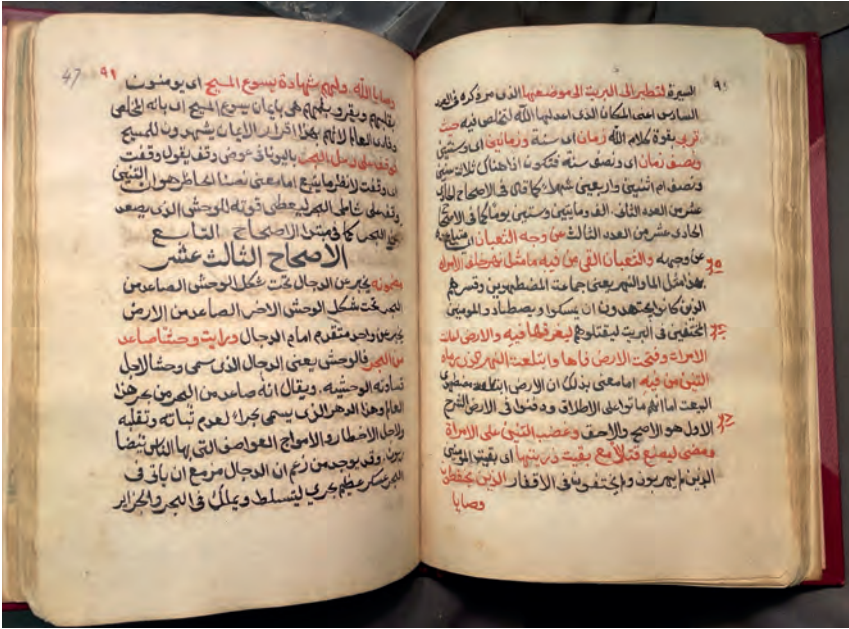 ٩٠
السيرة لتطير الى البريت الى موضعها الذى مر ذكره فى العدد
السادس اعنى المكان الذى اعد لها الله لتخلص فيه حيث
تربى بقوة كلام الله زمان اى سنة وزمانين اى سنتين
ونصف زمان اى ونصف سنة فتكون اذا هناك ثلاث سنين
ونصف ام اثنين واربعين شهراء كما قال فى الاصحاح الحادى
عشر من العدد الثانى. الف ومايتين وستين يومًا كما فى الاصحاح
الحادى عشر من العدد الثالث عن وجه الثعبان
عن وجهه والثعبان القى من فيه ما مثل نهر خلف الامراه
بهذا مثل الما والنهر يعنى جماعت المضطهدين وقسرهم
الذين كانو يجتهدون ان يمسكوا ويصطادو المومنين
المختفين فى البريت ليقتلوهم ليغرقها فيه والارض اعانت
الامراة وفتحت الارض فاها وابتلعت النهر الذى رماه
التنين من فيه اما معنى بذلك ان الارض ابتلعت مضطهدى
البيعت اما انهم ماتوا على الاطلاق ودفنوا فى الارض الشرح
الاول هو الاصح والاحق وغضب التنين على الامراة
ومضى ليصنع قتالاً مع بقيت ذريتها اى بقيت المومنين
الذين لم يهربون ولم يختفون فى الاقفار الذين يحفظون
وصايا
47 ٩١
وصايا الله. ولهم شهادة يسوع المسيح اى يومنون
بقلبهم ويقرو بفمهم هى بايمان يسوع المسيح اى بانه المخلص
وفادى العالم لانهم بهذا اقرار الايمان يشهدون للمسيح
فوقف على رمل البحر باليونانى عوض وقف يقول وقفت
اى وقفت لانظر ما يتبع اما معنى نصنا الحاظر هو ان التنين
وقف على شاطى البحر ليعطى قوته للوحش الذى يصعد
من البحر كما فى مبتدا الاصحاح التاسع
الاصحاح الثالث عشر
مضمونه يخبر عن الدجال تحت شكل الوحش الصاعد من
البحر تحت شكل الوحش الاخر الصاعد من الارض
يخبر عن واحد متقدم امام الدجال ورايت وحشًا صاعد
من البحر فالوحش يعنى الدجال الذى سمى وحشا لاجل
قساوته الوحشيه. ويقال انه صاعد من البحر من بحر هذا
العالم وهذا الدهر الذى يسمى بحراء لعدم ثباته وتقلبه
ولاجل الاخطار والامواج العواصف التى بها الناس
وقد يوجد من زعم ان الدجال مزمع ان ياتى فى
البحر بعسكر عظيم بحرى ليتسلط ويملك فى البحر والجزاير